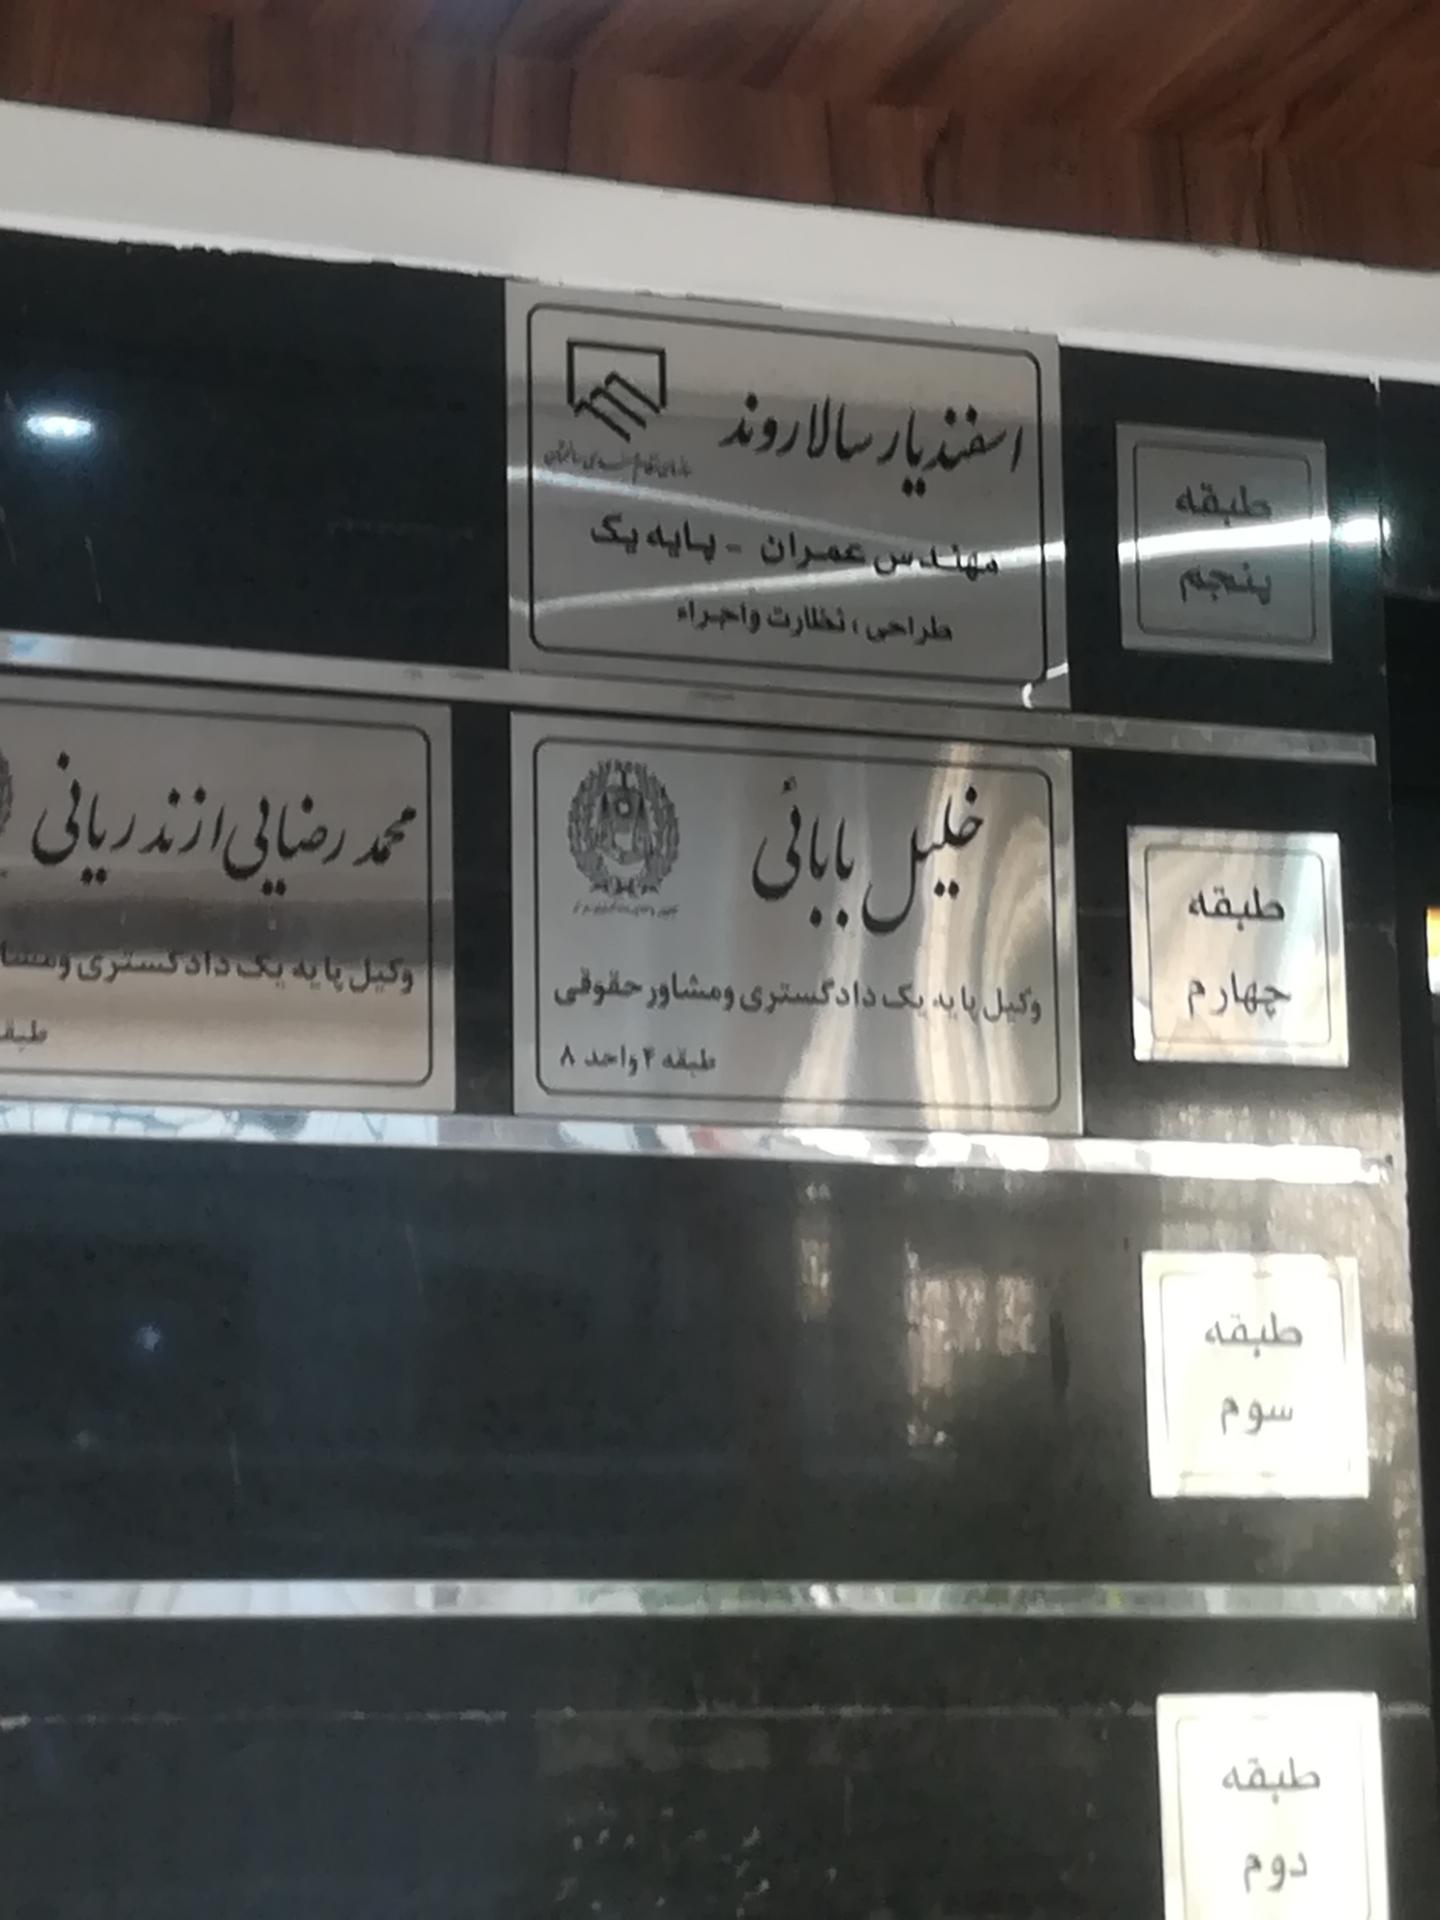 اسفندیار سالاروند
مهندس عمران - پایه یک
طراحی، نظارت واجراء
طبقه
پنجم
خلیل بابائی
وکیل پایه یک دادگستری ومشاور حقوقی
طبقه ۴ واحد ۸
محمد رضایی ازندریانی
وکیل پایه یک دادگستری
طبقه
چهارم
طبقه
سوم
طبقه
دوم